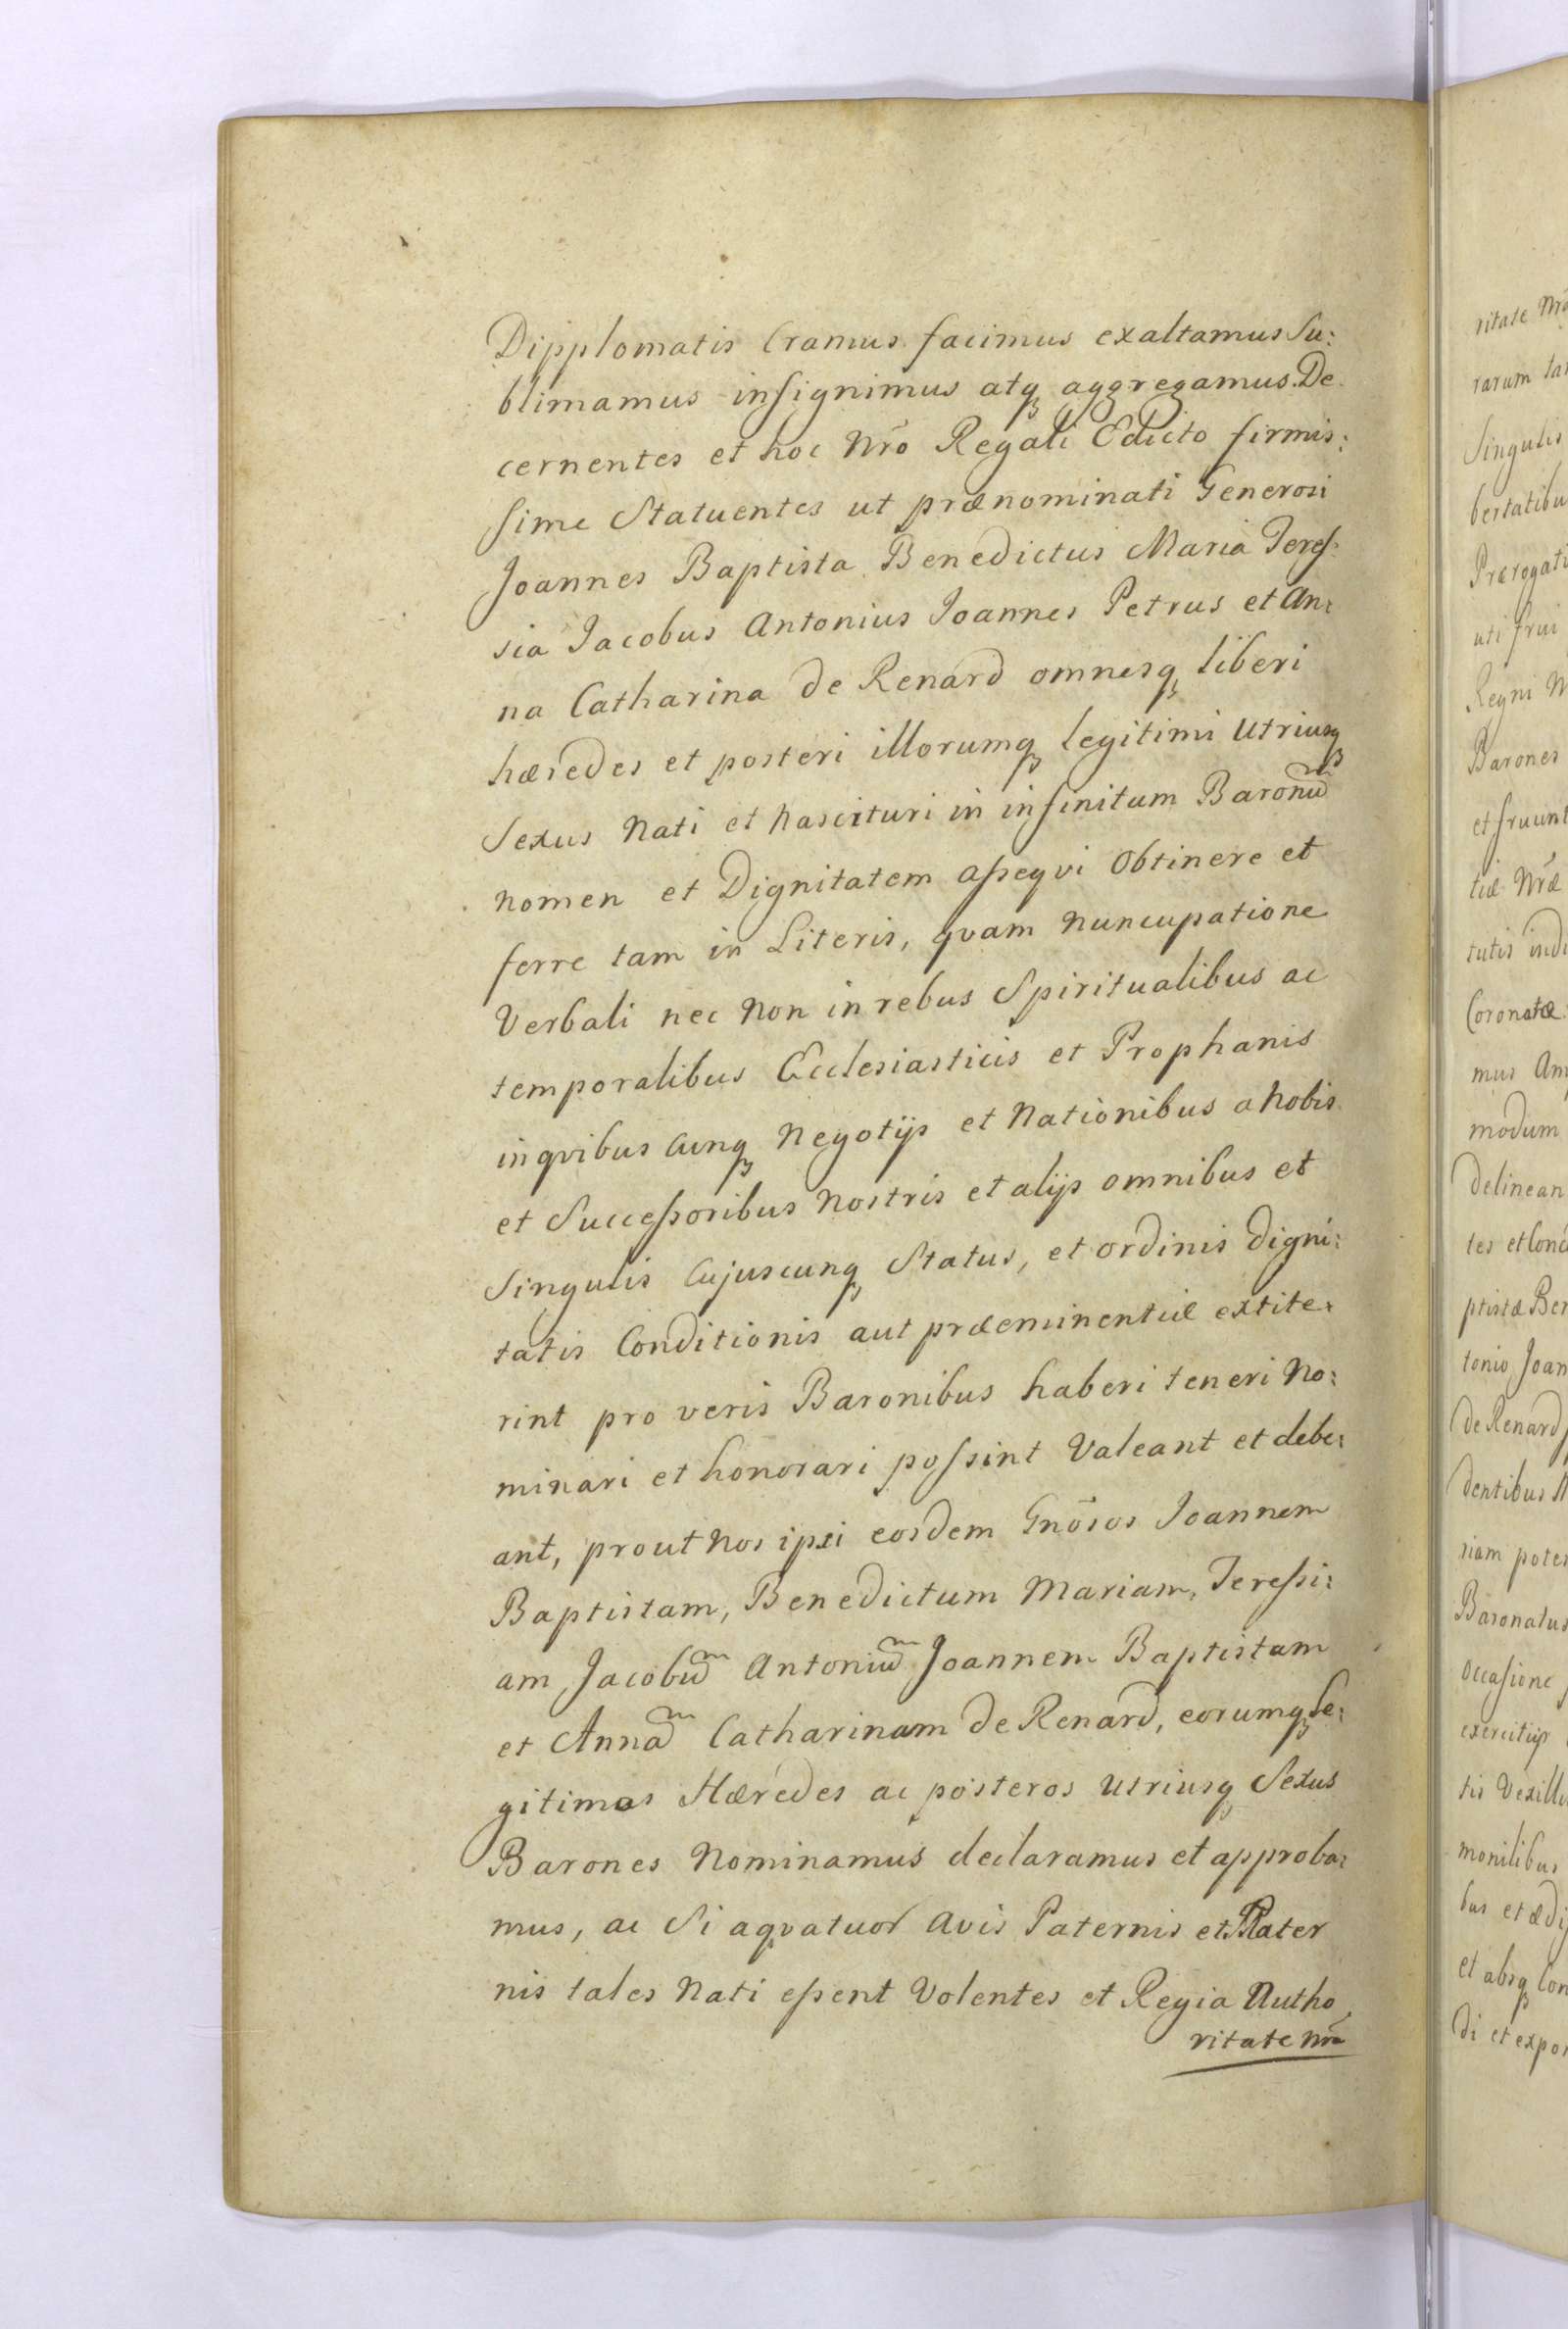 Dipplomatis Cramus facimus exaltamus Su:
blimamus insignimus atq̃ aggregamus. De
cernentes et hoc Nrõ Regali Edicto firmis:
sime Statuentes ut prænominati Generosi
Joannes Baptista Benedictus Maria Teres:
sia Jacobus Antonius Joannes Petrus et An:
na Catharina de Renard omnesq̃ liberi
hæredes et posteri illorumq̃ legitimi Utriusq̃
Sexus Nati et Nascituri in infinitum Baronũ
nomen et Dignitatem assequi Obtinere et
ferre tam in Literis, qvam Nuncupatione
Verbali nec Non in rebus Spiritualibus ac
temporalibus Ecclesiasticis et Prophanis
in qvibus cunq̃ Negotijs et Nationibus a Nobis
et Successoribus Nostris et alijs omnibus et
Singulis Cujuscunq̃ Status, et ordinis digni:
tatis Conditionis aut præeminentiæ extite:
rint pro veris Baronibus haberi teneri No:
minari et honorari possint Valeant et debe:
ant, prout Nos ipsi eosdem Gnõsos Joannem
Baptistam, Benedictum Mariam, Teressi:
am Jacobũ Antoniũ Joannem Baptistam
et Annã Catharinam de Renard, eorumq̃ le:
gitimos Hæredes ac posteros Utriusq̃ Sexus
Barones Nominamus declaramus et approba:
mus, ac Si aqvatuor Avis Paternis et Mater
nis tales Nati essent Volentes et Regia Autho
ritate Nrã
ritate Nrã
rarum
Singulis
bertatibu
Prærogati
uti frui
Regni N
Barones
et fruunt
tiæ Nræ
tutis indi
Coronatæ
mus Am
modum
delinean
tes et Conc
ptistæ Ben
tonio Joan
de Renard
dentibus N
riam potes
Baronatus
occasione
exercitijs
tis Vexilli
monilibus
bus et ædi
et absq̃ Con
di et expon